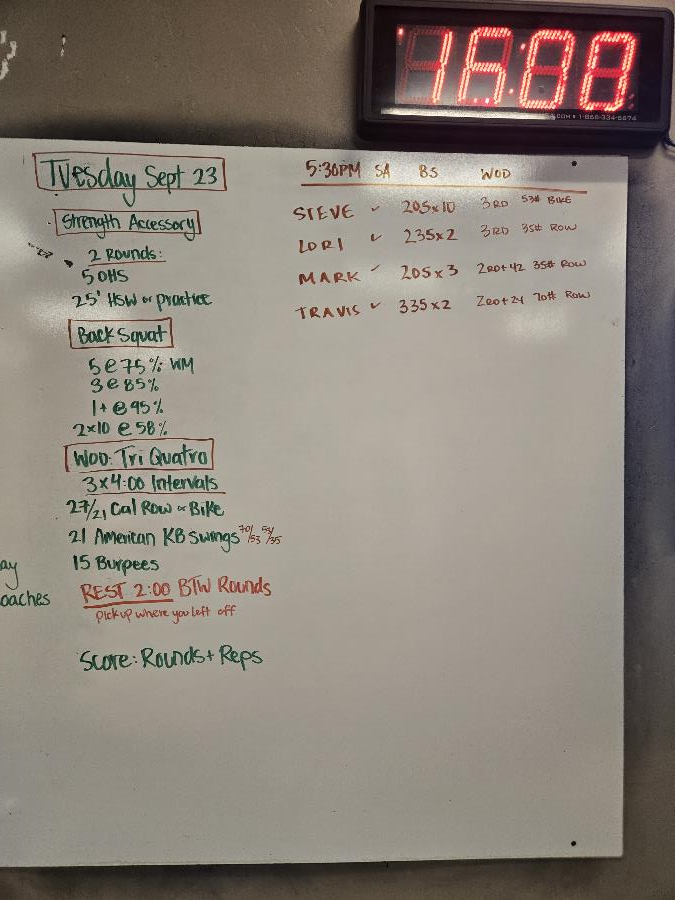 16:00
.COM • 1-866-334-6674
Tuesday Sept 23
Strength Accessory
2 Rounds:
5 OHS
25' HSW or practice
Back Squat
5 @ 75% WM
3 @ 85%
1+ @ 95%
2×10 @ 58%
WOD: Tri Quatro
3×4:00 Intervals
27/21 Cal Row or Bike
21 American KB Swings 70/53 53/35
15 Burpees
REST 2:00 BTW Rounds
pick up where you left off
Score: Rounds + Reps
ay
oaches
5:30PM SA BS WOD
STEVE ✓ 205×10 3RD 53# BIKE
LORI ✓ 235×2 3RD 35# ROW
MARK ✓ 205×3 2RD+42 35# ROW
TRAVIS ✓ 335×2 2RD+24 70# ROW